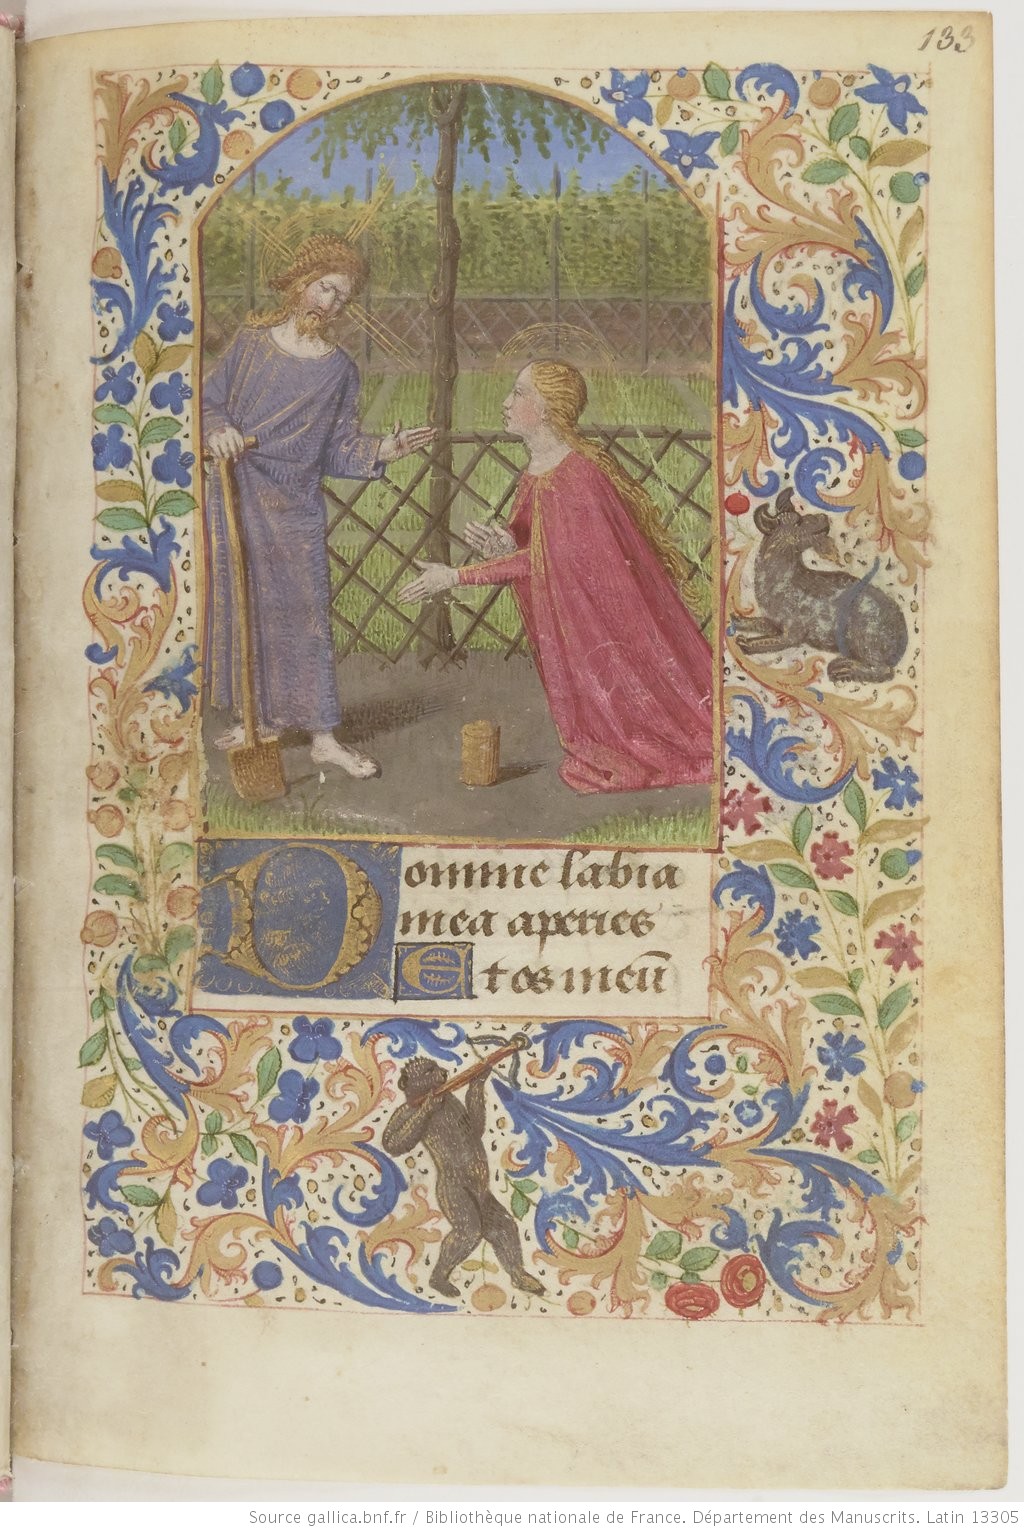 133
Domine labia
mea aperies
Et os meū
Source gallica.bnf.fr / Bibliothèque nationale de France. Département des Manuscrits. Latin 13305